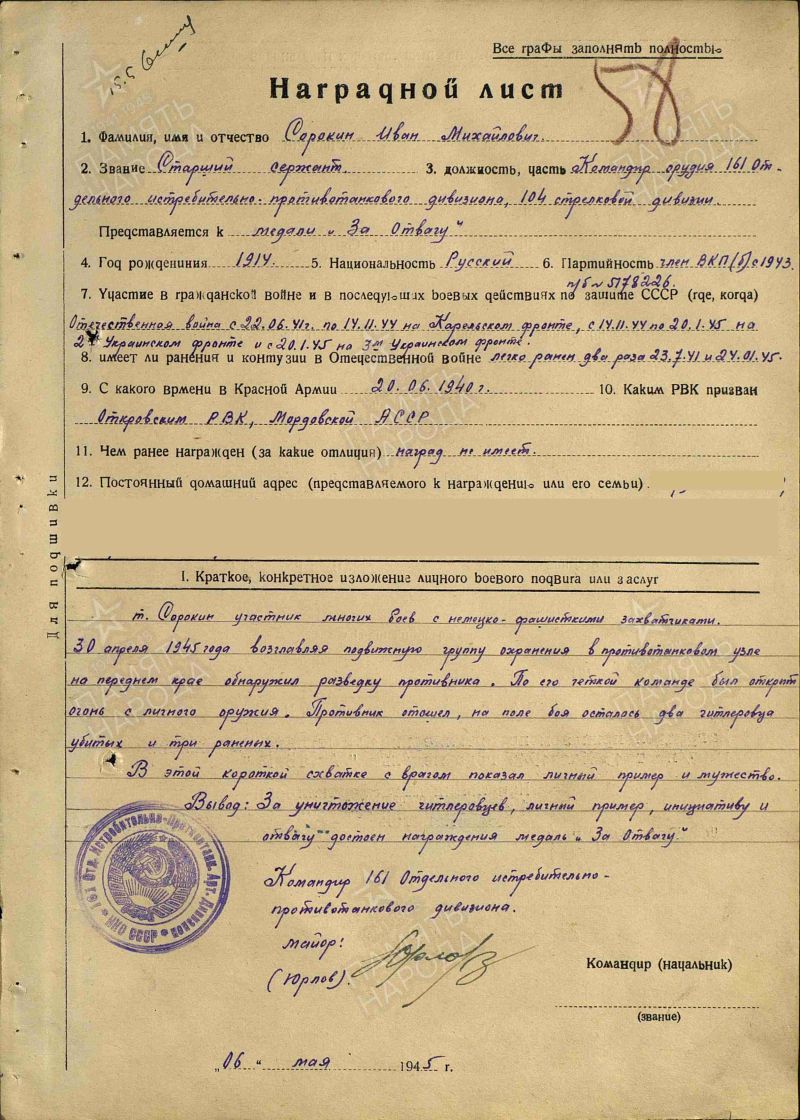 15.5
Все графы заполнять полностью
Наградной лист
58
1. Фамилия, имя и отчество Сорокин Иван Михайлович.
2. Звание Старший сержант. 3. должность, часть Командир орудия 161 От-
дельного истребительно-противотанкового дивизиона, 104 стрелковой дивизии.
Представляется к медали „За Отвагу"
4. Год рождениния 1914. 5. Национальность Русский 6. Партийность член ВКП(б) с 1943.
п/б № 5178226.
7. Участие в гражданской войне и в последующих боевых действиях по защите СССР (где, когда)
Отечественная война с 22.06.41г. по 14.11.44 на Карельском фронте, с 14.11.44 по 20.1.45 на
2ом Украинском фронте и с 20.1.45 на 3ем Украинском фронте.
8. имеет ли ранения и контузии в Отецественной войне легко ранен два раза 23.7.41 и 24.01.45.
9. С какого врмени в Красной Армии 20.06.1940 г. 10. Каким РВК призван
Откровским РВК, Мордовской АССР
11. Чем ранее награжден (за какие отлиция) наград не имеет.
12. Постоянный домашний адрес (представляемого к награждению или его семьи)
Для подшивки
I. Краткое, конкретное изложение лицного боевого подвига или заслуг
т. Сорокин участник многих боев с немецко-фашисткими захватчиками.
30 апреля 1945 года возглавляя подвижную группу охранения в противотанковом узле
на переднем крае обнаружил разведку противника. По его четкой команде был открыт
огонь с личного оружия. Противник отошел, на поле боя осталось два гитлеровца
убитых и три раненых.
В этой короткой схватке с врагом показал личный пример и мужество.
Вывод: За уничтожение гитлеровцев, личный пример, инициативу и
отвагу достоен награждения медаль „За Отвагу"
161 Отд. Истребительно-Противотанк. Арт. Дивизион
НКО СССР
Командир 161 Отдельного истребительно-
противотанкового дивизиона.
майор:
(Юрлов).
Командир (начальник)
(звание)
„06" мая 1945 г.
ПАМЯТЬ НАРОДА